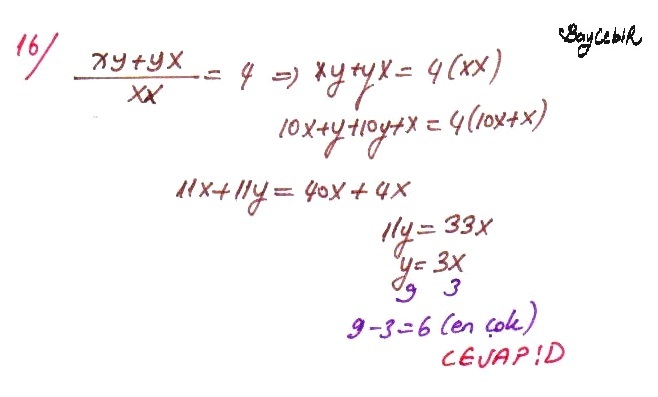 BayCebiR
16/
xy+yx / xx = 4 => xy+yx = 4(xx)
10x+y+10y+x = 4(10x+x)
11x+11y = 40x + 4x
11y = 33x
y = 3x
9 3
9-3=6 (en çok)
CEVAP!D